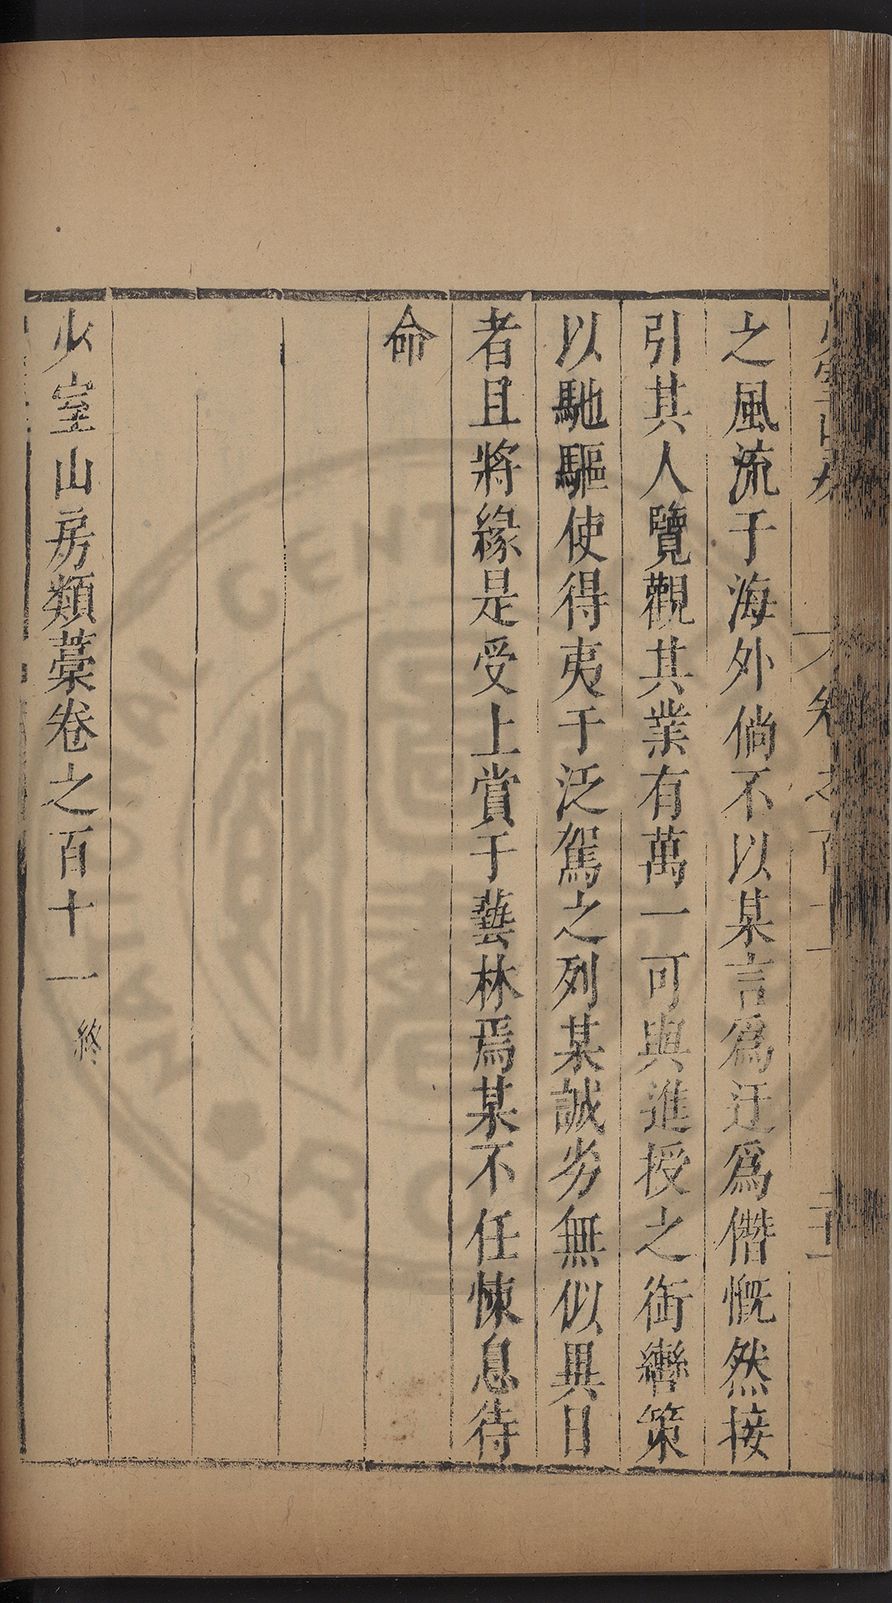 之風流于海外倘不以某言爲迂爲僭慨然接
引其人覽觀其業有萬一可與進授之銜轡策
以馳驅使得夷于泛駕之列某誠劣無似異日
者且將緣是受上賞于藝林焉某不任悚息待
命
少室山房類藁卷之百十一 終